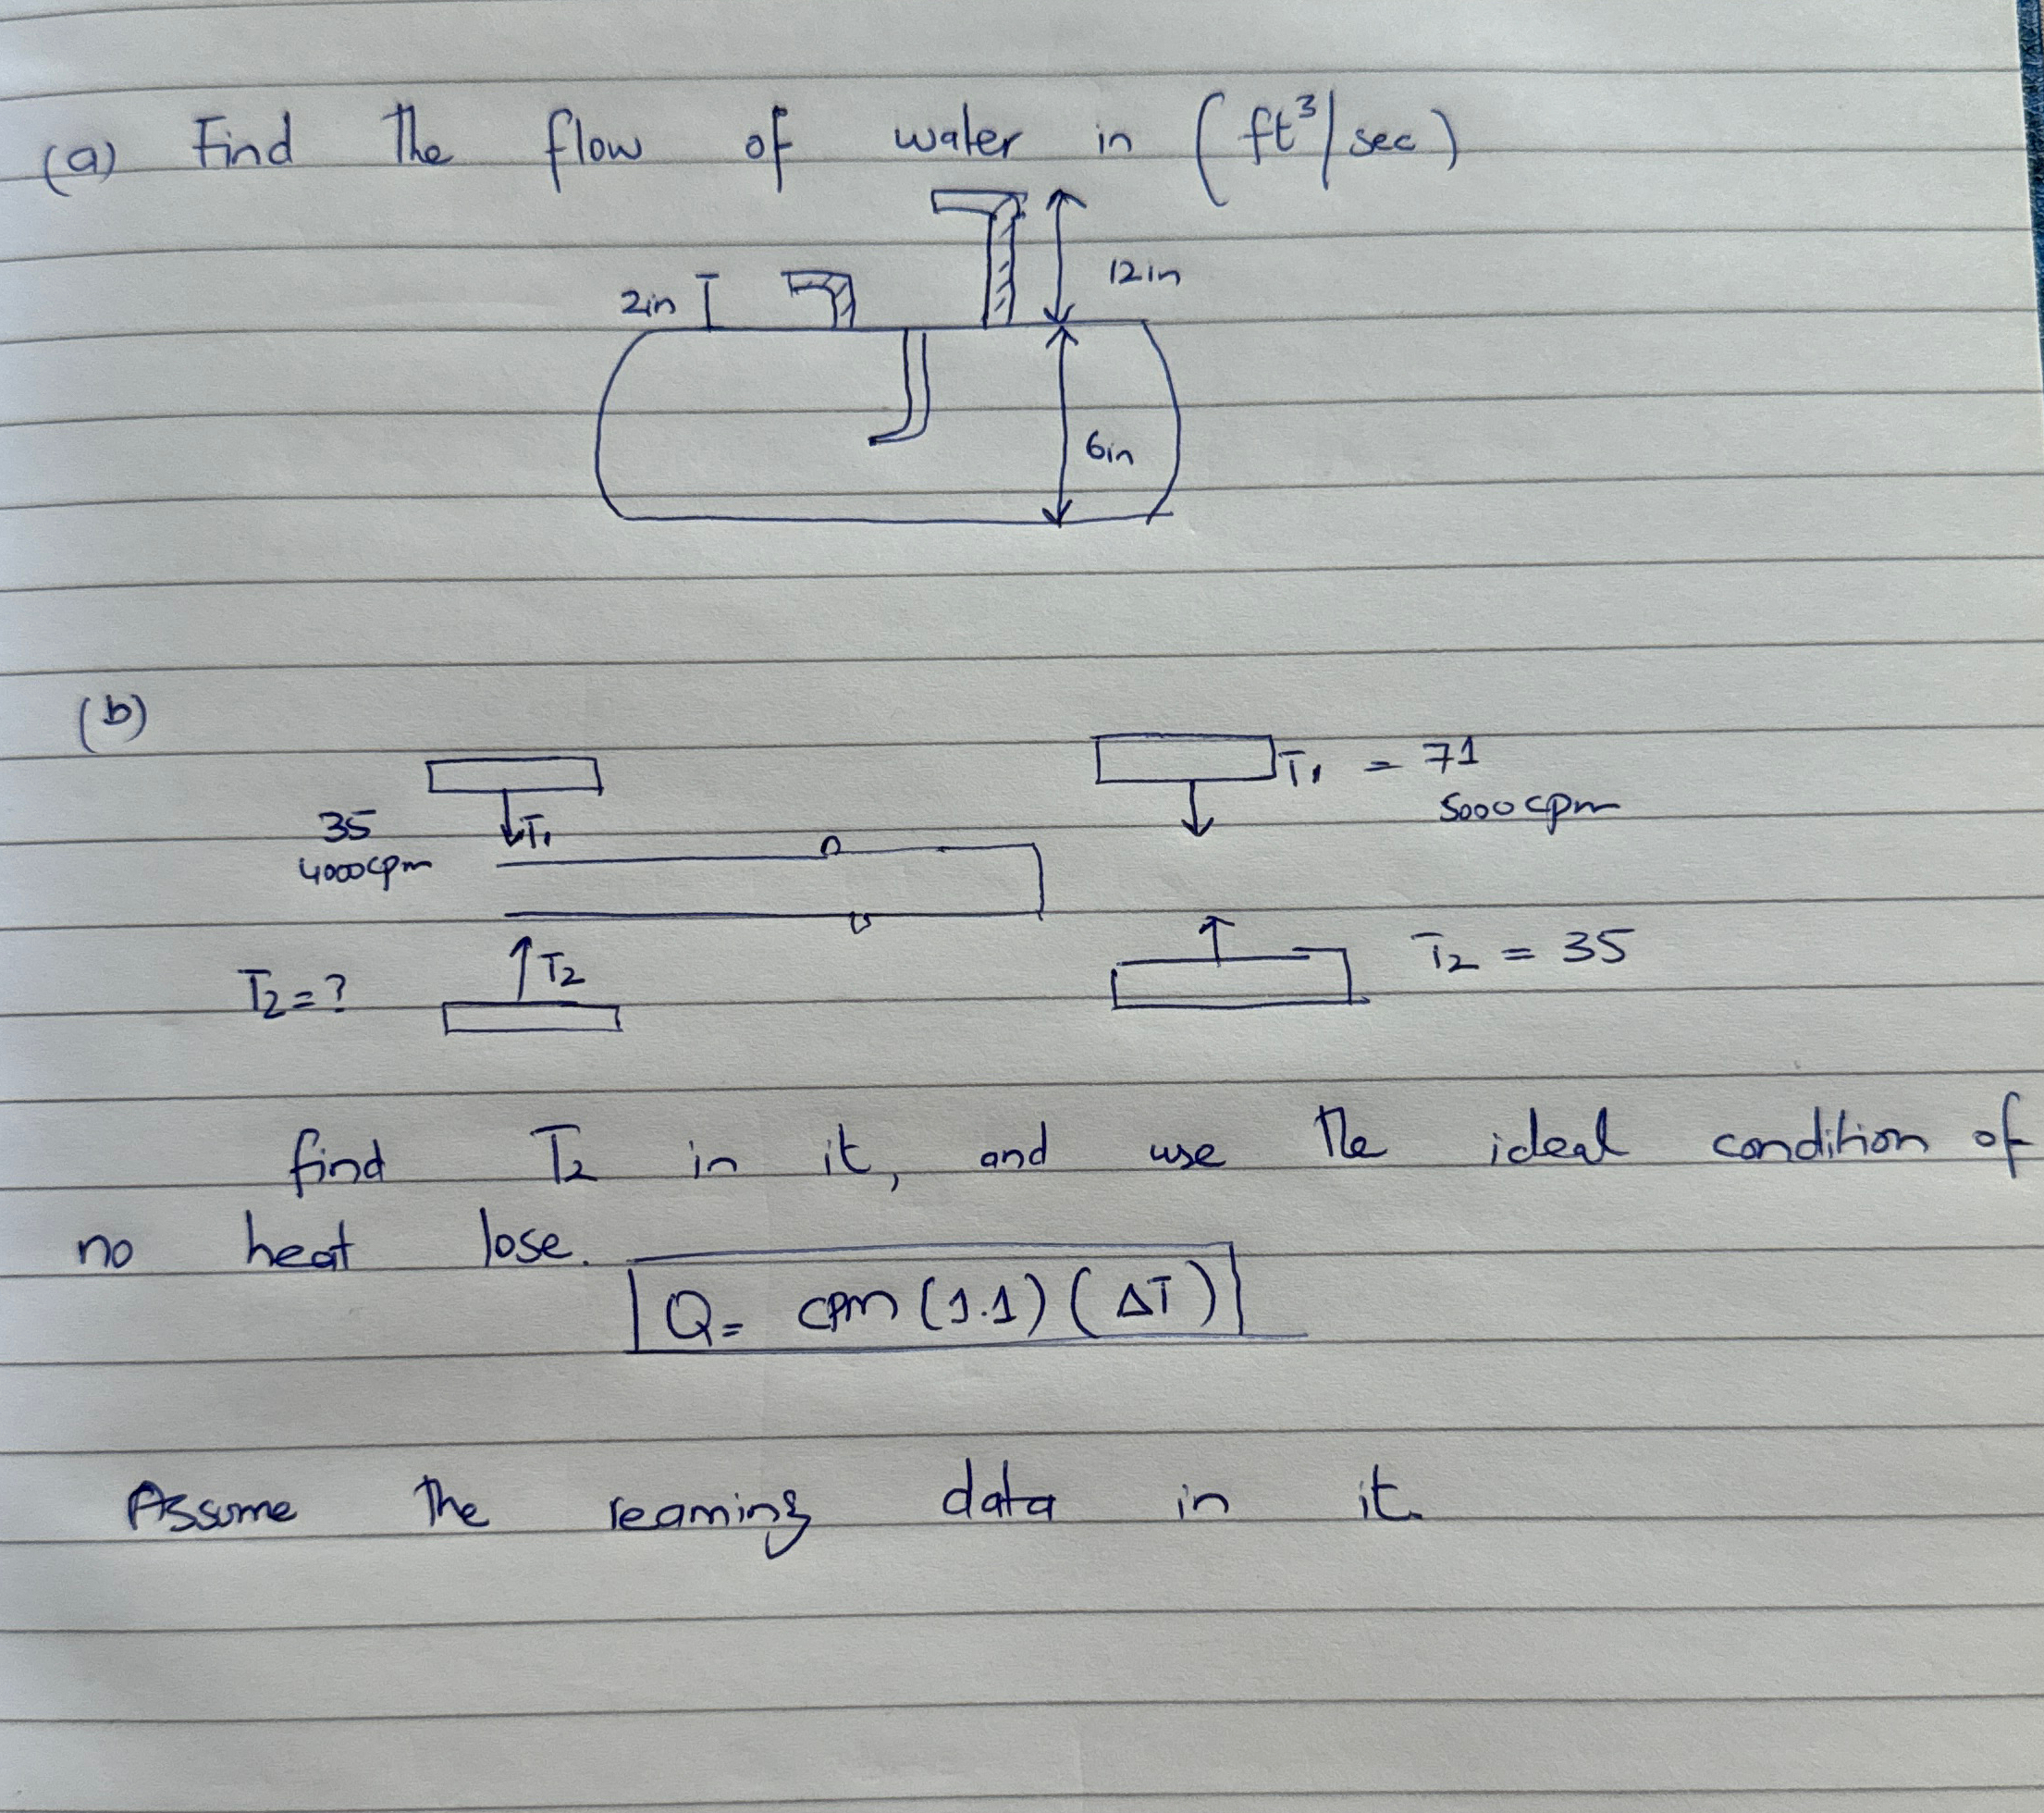 (a) Find the flow of water in (ft³/sec)
12in
2in
6in
(b)
T₁ = 71
5000 cpm
35
T₁
4000cpm
T₂ = 35
T₂
T₂ = ?
find T₂ in it, and use the ideal condition of
no heat lose.
Q = cpm (1.1) (ΔT)
Assume the reaming data in it.